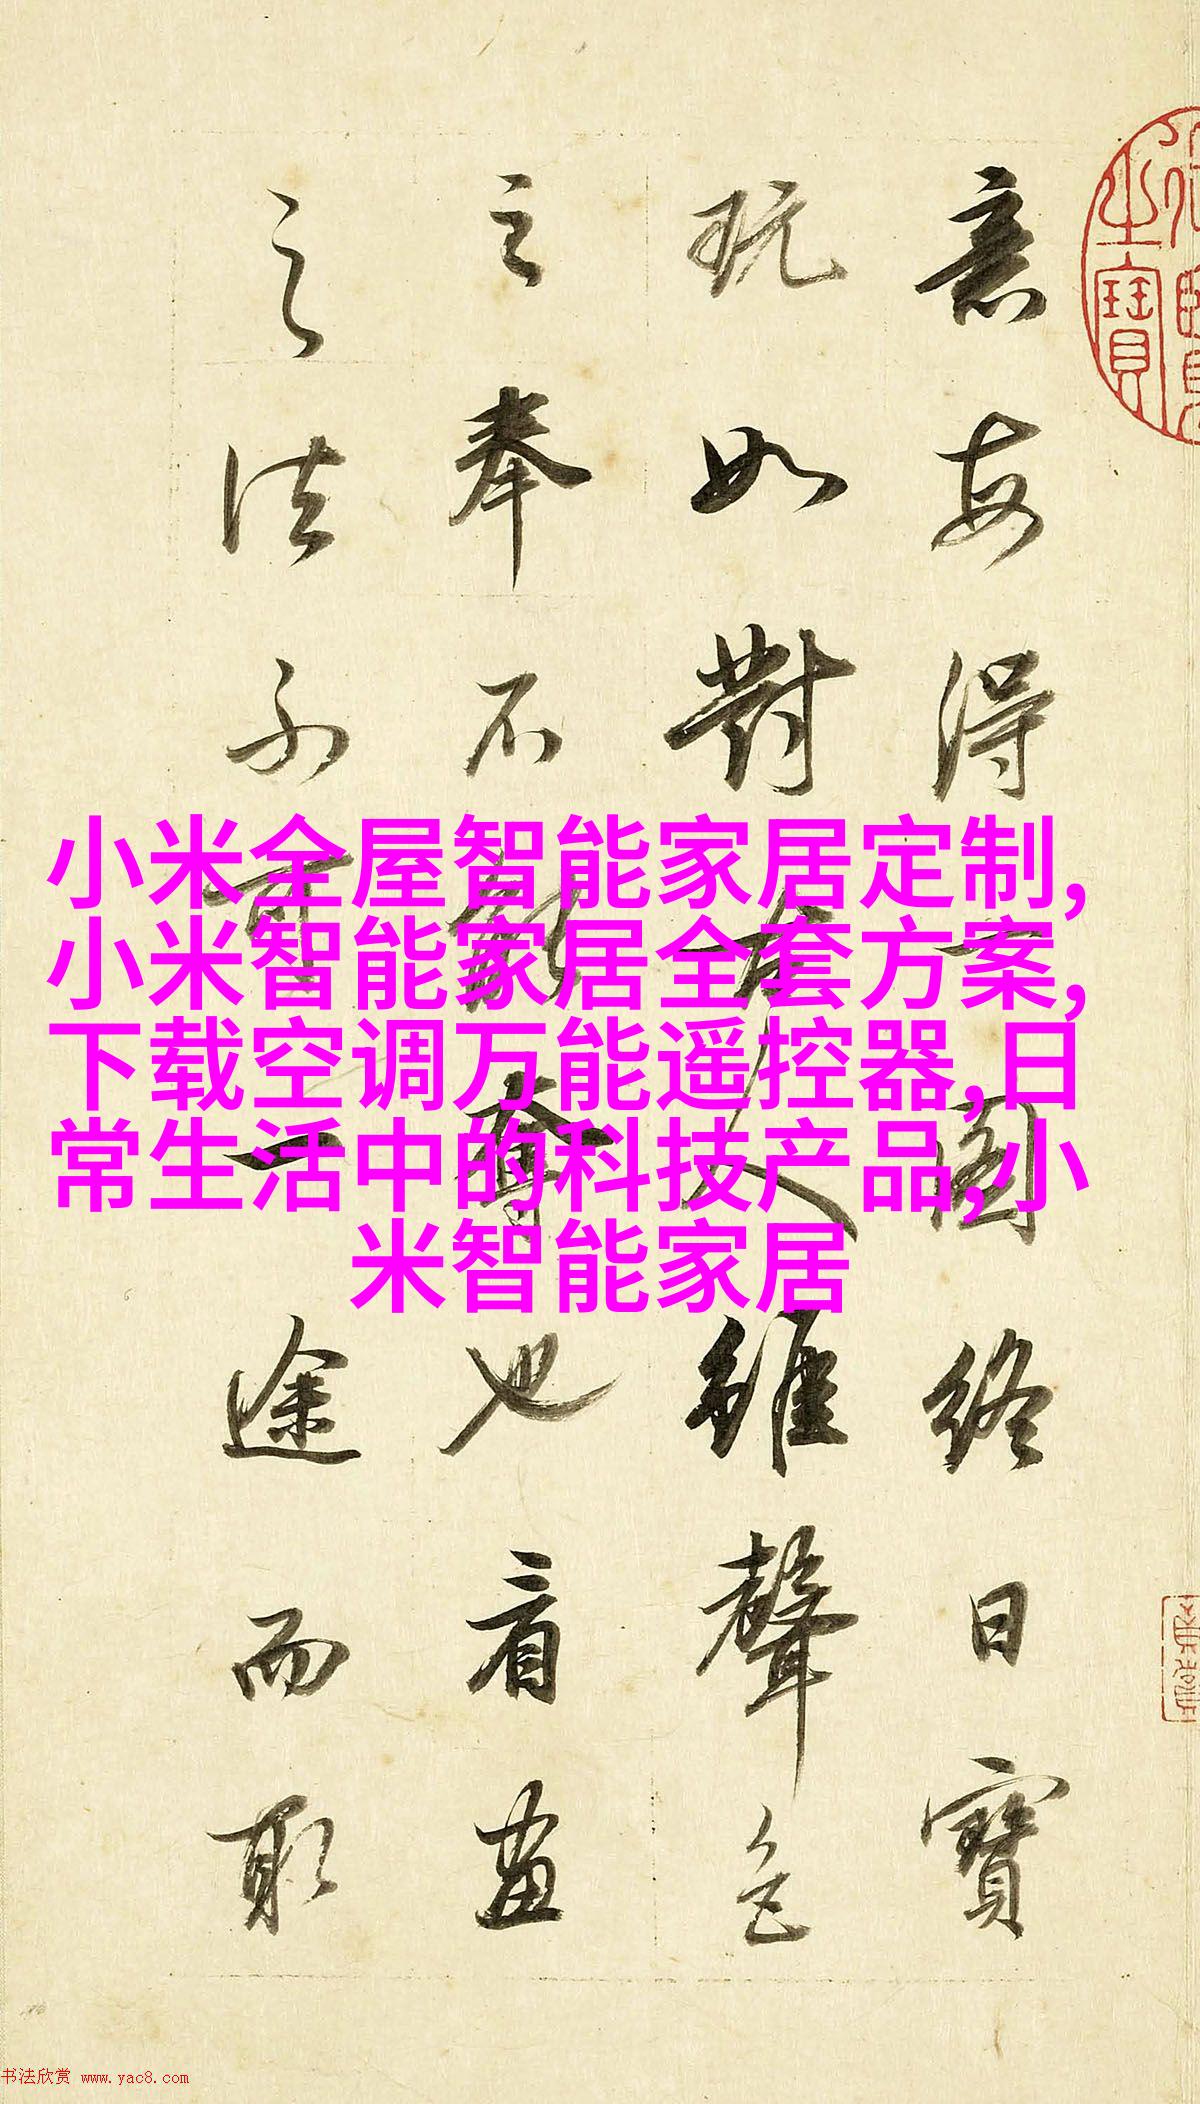 意每得一圖終日寶
玩如對古人雖聲色
之奉不能奪也看畫
之法不可一途而取
之寶
小米全屋智能家居定制,
小米智能家居全套方案,
下载空调万能遥控器,日
常生活中的科技产品,小
米智能家居
书法欣赏 www.yac8.com